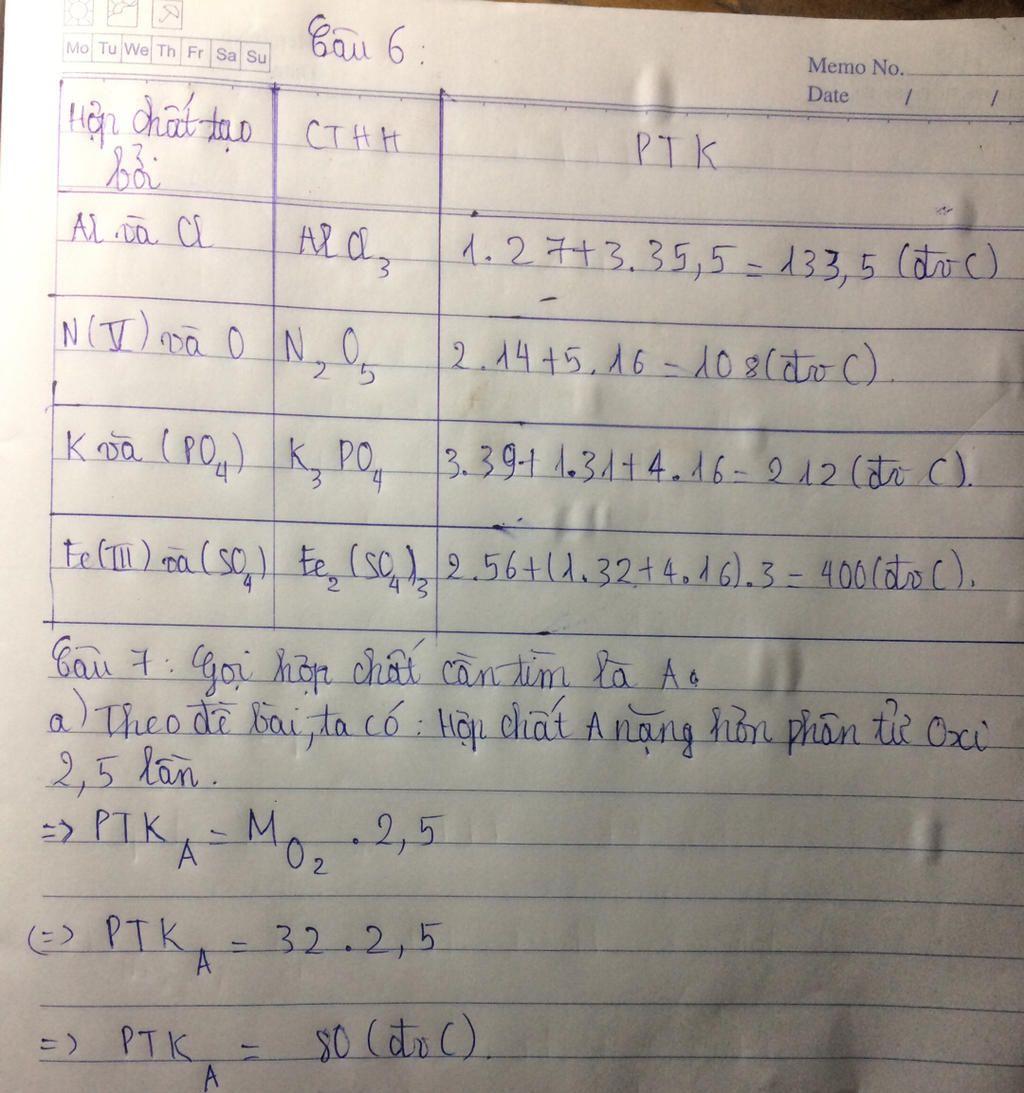 Mo Tu We Th Fr Sa Su
Câu 6:
Memo No.
Date / /
Hợp chất tạo bởi | CTHH | PTK
Al và Cl | AlCl₃ | 1.27+3.35,5=133,5 (đvC)
N(V) và O | N₂O₅ | 2.14+5.16=108(đvC).
K và (PO₄) | K₃PO₄ | 3.39+1.31+4.16=212(đvC).
Fe(III) và (SO₄) | Fe₂(SO₄)₃ | 2.56+(1.32+4.16).3=400(đvC).
Câu 7: Gọi hợp chất cần tìm là A.
a) Theo đề bài, ta có: Hợp chất A nặng hơn phân tử Oxi
2,5 lần.
=> PTK_A = M_O₂ . 2,5
(=> PTK_A = 32 . 2,5
=> PTK_A = 80 (đvC).